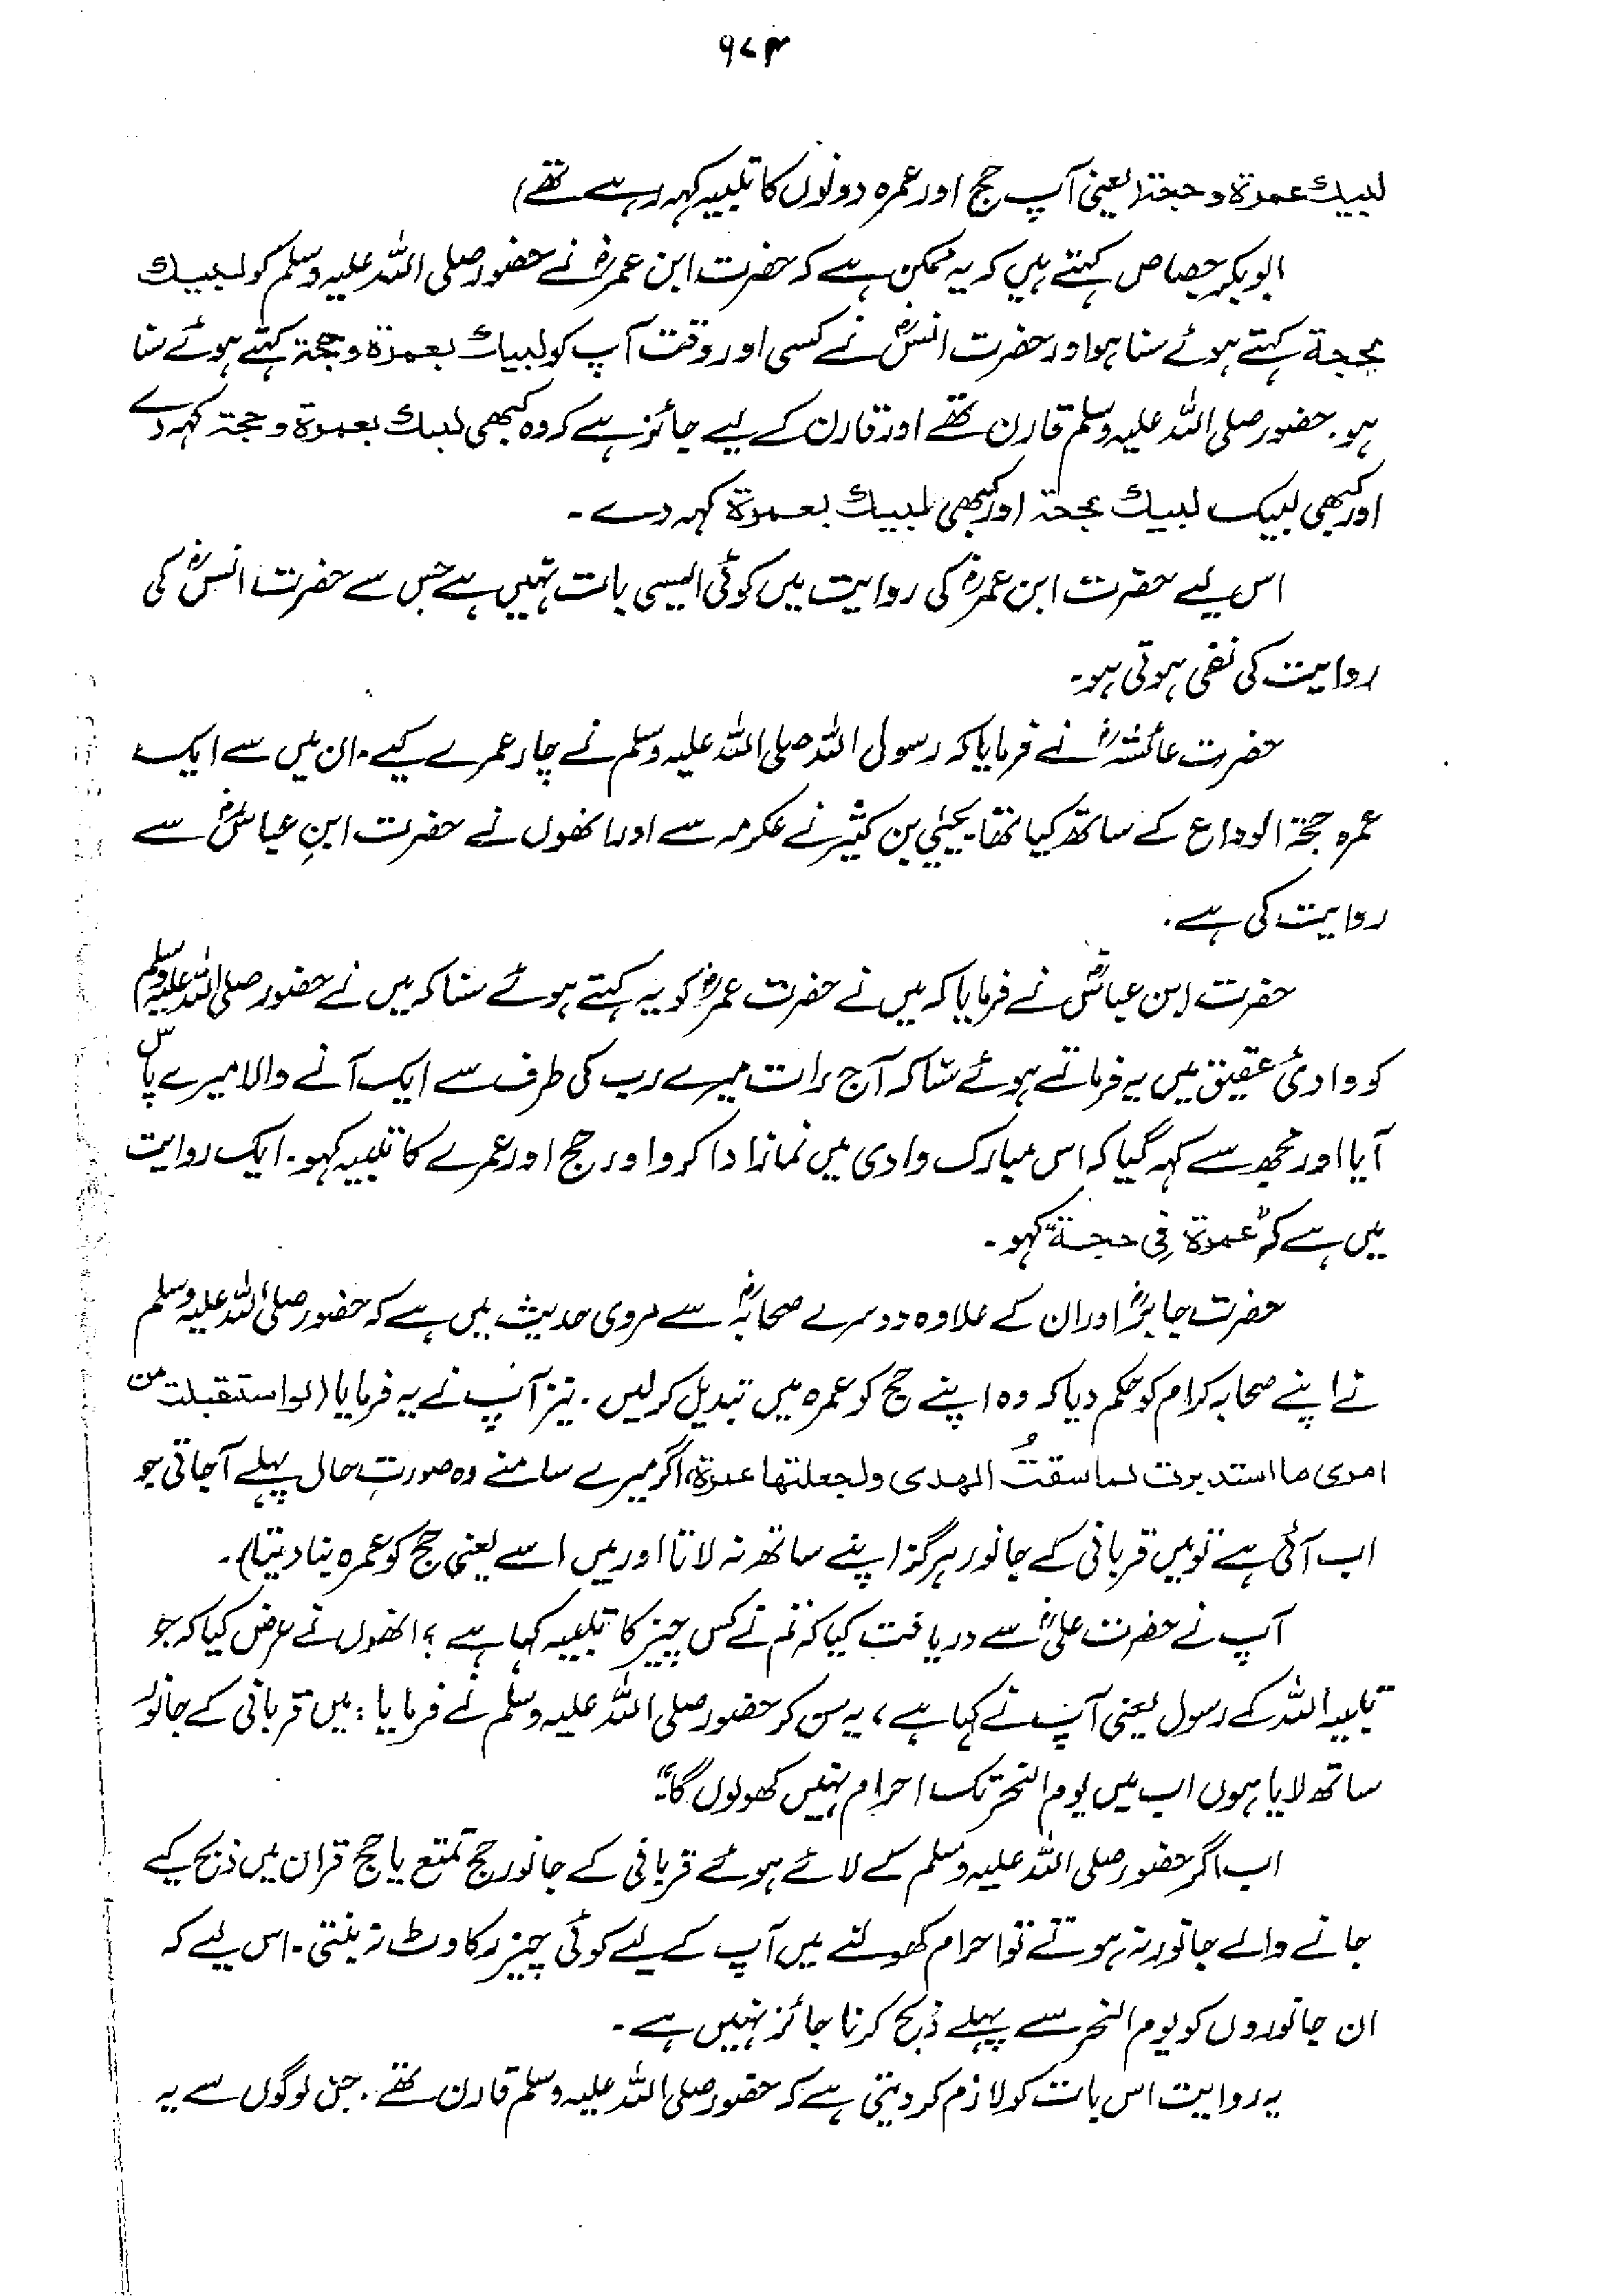 ۶۷۴
لبيك عمرة وحجة (یعنی آپ حج اور عمرہ دونوں کا تلبیہ کہہ رہے تھے)
ابوبکر جصاص کہتے ہیں کہ یہ ممکن ہے کہ حضرت ابن عمرؓ نے حضور صلی اللہ علیہ وسلم کو لبيك
بحجة کہتے ہوئے سنا ہو اور حضرت انسؓ نے کسی اور وقت آپ کو لبيك بعمرة وحجة کہتے ہوئے سنا
ہو۔ حضور صلی اللہ علیہ وسلم قارن تھے اور قارن کے لیے جائز ہے کہ وہ کبھی لبيك بعمرة وحجة کہہ دے
اور کبھی لبیک لبيك بحجة اور کبھی لبيك بعمرة کہہ دے۔
اس لیے حضرت ابن عمرؓ کی روایت میں کوئی ایسی بات نہیں ہے جس سے حضرت انسؓ کی
روایت کی نفی ہوتی ہو۔
حضرت عائشہؓ نے فرمایا کہ رسول اللہ صلی اللہ علیہ وسلم نے چار عمرے کیے۔ ان میں سے ایک
عمرہ حجۃ الوداع کے ساتھ کیا تھا۔ یحییٰ بن کثیر نے عکرمہ سے اور انھوں نے حضرت ابنِ عباسؓ سے
روایت کی ہے۔
حضرت ابن عباسؓ نے فرمایا کہ میں نے حضرت عمرؓ کو یہ کہتے ہوئے سنا کہ میں نے حضور صلی اللہ علیہ وسلم
کو وادیٔ عقیق میں یہ فرماتے ہوئے سنا کہ آج رات میرے رب کی طرف سے ایک آنے والا میرے پاس
آیا اور مجھ سے کہہ گیا کہ اس مبارک وادی میں نماز ادا کرو اور حج اور عمرے کا تلبیہ کہو۔ ایک روایت
میں ہے کہ "عمرة في حجة" کہو۔
حضرت جابرؓ اور ان کے علاوہ دوسرے صحابہؓ سے مروی حدیث میں ہے کہ حضور صلی اللہ علیہ وسلم
نے اپنے صحابہ کرام کو حکم دیا کہ وہ اپنے حج کو عمرہ میں تبدیل کر لیں۔ نیز آپ نے یہ فرمایا (لو استقبلت من
امری ما استدبرت لما سقتُ الهدی ولجعلتها عمرة، اگر میرے سامنے وہ صورتِ حال پہلے آجاتی جو
اب آئی ہے تو میں قربانی کے جانور ہرگز اپنے ساتھ نہ لاتا اور میں اسے یعنی حج کو عمرہ بنا دیتا)۔
آپ نے حضرت علیؓ سے دریافت کیا کہ تم نے کس چیز کا تلبیہ کہا ہے؟ انھوں نے عرض کیا کہ جو
تلبیہ اللہ کے رسول یعنی آپ نے کہا ہے، یہ سن کر حضور صلی اللہ علیہ وسلم نے فرمایا: میں قربانی کے جانور
ساتھ لایا ہوں اب میں یوم النحر تک احرام نہیں کھولوں گا"۔
اب اگر حضور صلی اللہ علیہ وسلم کے لائے ہوئے قربانی کے جانور حج تمتع یا حج قران میں ذبح کیے
جانے والے جانور نہ ہوتے تو احرام کھولنے میں آپ کے لیے کوئی چیز رکاوٹ نہ بنتی۔ اس لیے کہ
ان جانوروں کو یوم النحر سے پہلے ذبح کرنا جائز نہیں ہے۔
یہ روایت اس بات کو لازم کر دیتی ہے کہ حضور صلی اللہ علیہ وسلم قارن تھے۔ جن لوگوں سے یہ